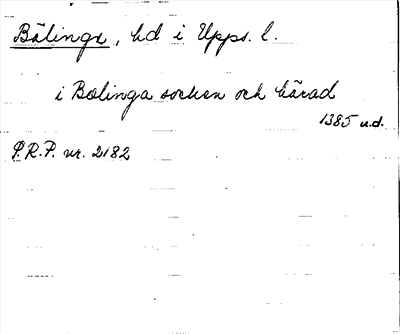 Bälinge, hd i Upps. l.
i Bælinga socken och härad
1385 u.d.
P.R.P. nr. 2182